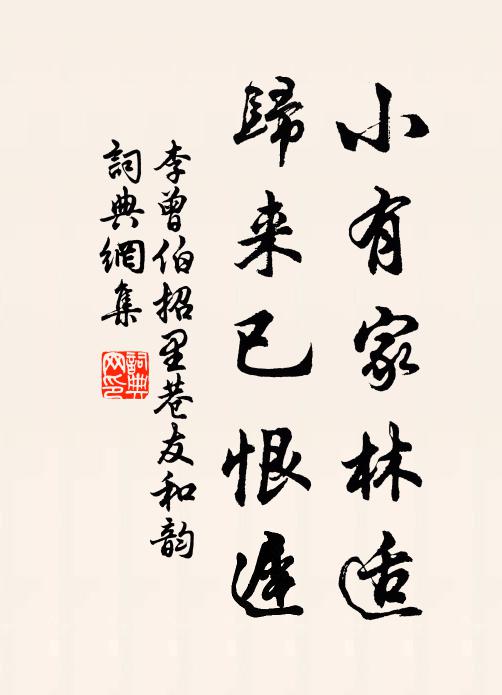 小有家林适
歸来已恨遅
李曾伯招里巷友和韵
詞典網集
詞典網印